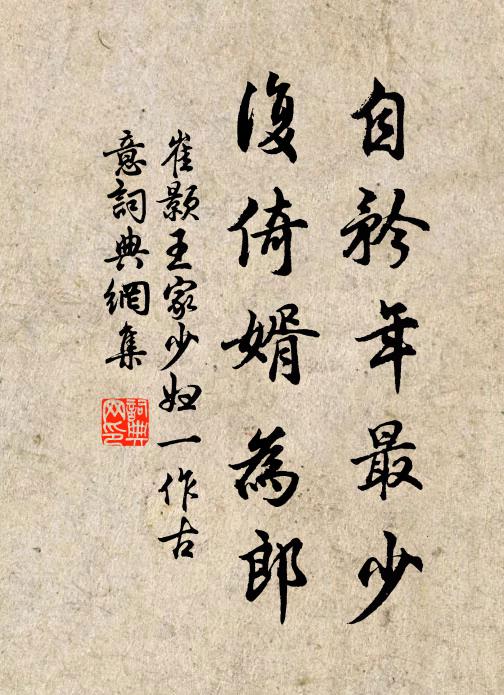 自矜年最少
復倚婿為郎
崔顥王家少婦一作古
意詞典網集
詞典
网印